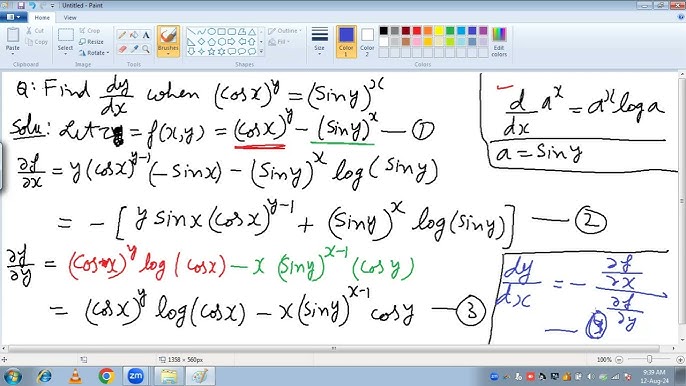 Untitled - Paint
Home View
Paste Cut Copy Select Crop Resize Rotate Brushes Outline Fill Size Color 1 Color 2 Edit colors
Clipboard Image Tools Shapes Colors
Q: Find dy/dx when (cosx)^y = (siny)^x
Solu: Let z = f(x,y) = (cosx)^y - (siny)^x — ①
∂f/∂x = y(cosx)^(y-1) (-sinx) - (siny)^x log(siny)
= -[y sinx (cosx)^(y-1) + (siny)^x log(siny)] — ②
∂f/∂y = (cosx)^y log(cosx) - x (siny)^(x-1) (cosy)
= (cosx)^y log(cosx) - x(siny)^(x-1) cosy — ③
d/dx a^x = a^x log a
a = siny
dy/dx = - (∂f/∂x)/(∂f/∂y)
— ④
1358 × 560px
100%
zm
9:39 AM
12-Aug-24